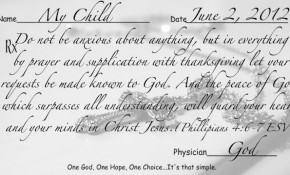 Name My Child Date June 2, 2012
Rx Do not be anxious about anything, but in everything
by prayer and supplication with thanksgiving let your
requests be made known to God. And the peace of God
which surpasses all understanding, will guard your hear
and your minds in Christ Jesus. (Phillipians 4:6-7 ESV
Physician God
One God, One Hope, One Choice...It's that simple.